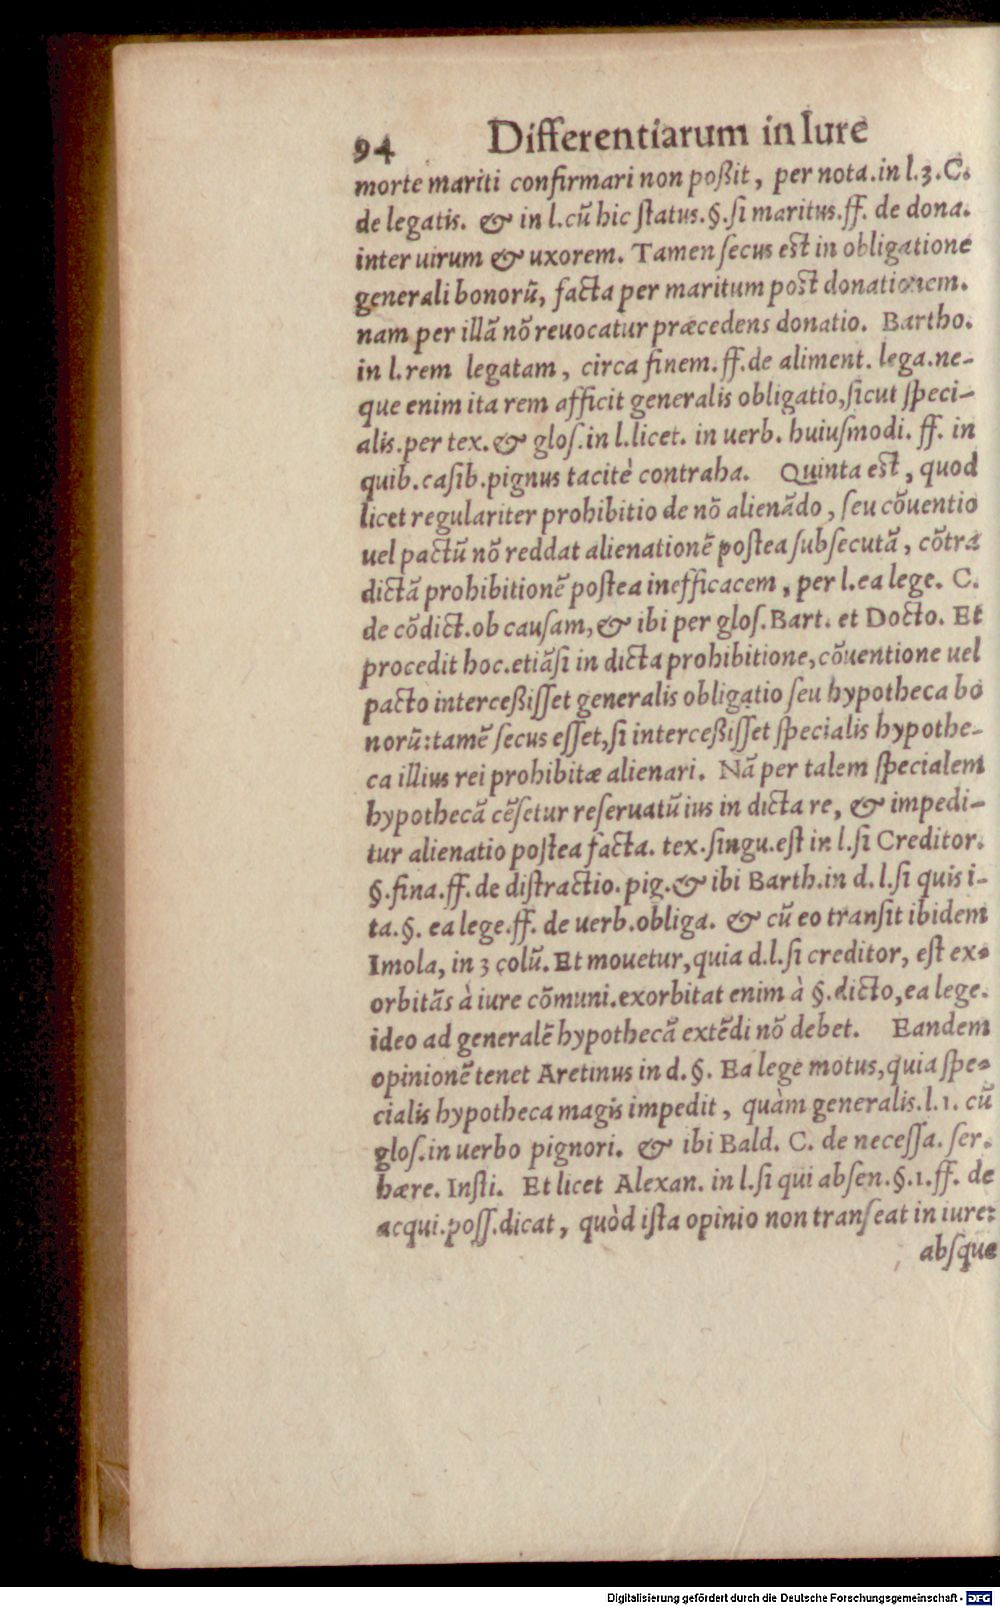 94 Differentiarum in Iure
morte mariti confirmari non poßit, per nota.in l.3.C.
de legatis. & in l.cū hic ſtatus.§.ſi maritus.ff. de dona.
inter uirum & uxorem. Tamen ſecus eſt in obligatione
generali bonorū, facta per maritum poſt donationem.
nam per illā nō reuocatur præcedens donatio. Bartho.
in l.rem legatam, circa finem.ff.de aliment. lega.ne-
que enim ita rem afficit generalis obligatio,ſicut ſpeci-
alis.per tex.& gloſ.in l.licet. in uerb. huiuſmodi. ff. in
quib.caſib.pignus tacitè contraha. Quinta eſt, quod
licet regulariter prohibitio de nō alienādo, ſeu cōuentio
uel pactū nō reddat alienationē poſtea ſubſecutā, cōtra
dictā prohibitionē poſtea inefficacem, per l.ea lege. C.
de cōdict.ob cauſam,& ibi per gloſ.Bart. et Docto. Et
procedit hoc.etiāſi in dicta prohibitione,cōuentione uel
pacto interceßiſſet generalis obligatio ſeu hypotheca bo
norū:tamē ſecus eſſet,ſi interceßiſſet ſpecialis hypothe-
ca illius rei prohibitæ alienari. Nā per talem ſpecialem
hypothecā cēſetur reſeruatū ius in dicta re, & impedi-
tur alienatio poſtea facta. tex.ſingu.eſt in l.ſi Creditor.
§.fina.ff.de diſtractio.pig.& ibi Barth.in d.l.ſi quis i-
ta.§. ea lege.ff. de uerb.obliga. & cū eo tranſit ibidem
Imola, in 3 colū. Et mouetur,quia d.l.ſi creditor, eſt ex-
orbitās à iure cōmuni.exorbitat enim à §.dicto,ea lege.
ideo ad generalē hypothecā extēdi nō debet. Eandem
opinionē tenet Aretinus in d.§. Ea lege motus,quia ſpe-
cialis hypotheca magis impedit, quàm generalis.l.1. cū
gloſ.in uerbo pignori. & ibi Bald. C. de neceſſa. ſer.
hære. Inſti. Et licet Alexan. in l.ſi qui abſen.§.1.ff. de
acqui.poſſ.dicat, quòd iſta opinio non tranſeat in iure:
abſque
Digitalisierung gefördert durch die Deutsche Forschungsgemeinschaft - DFG